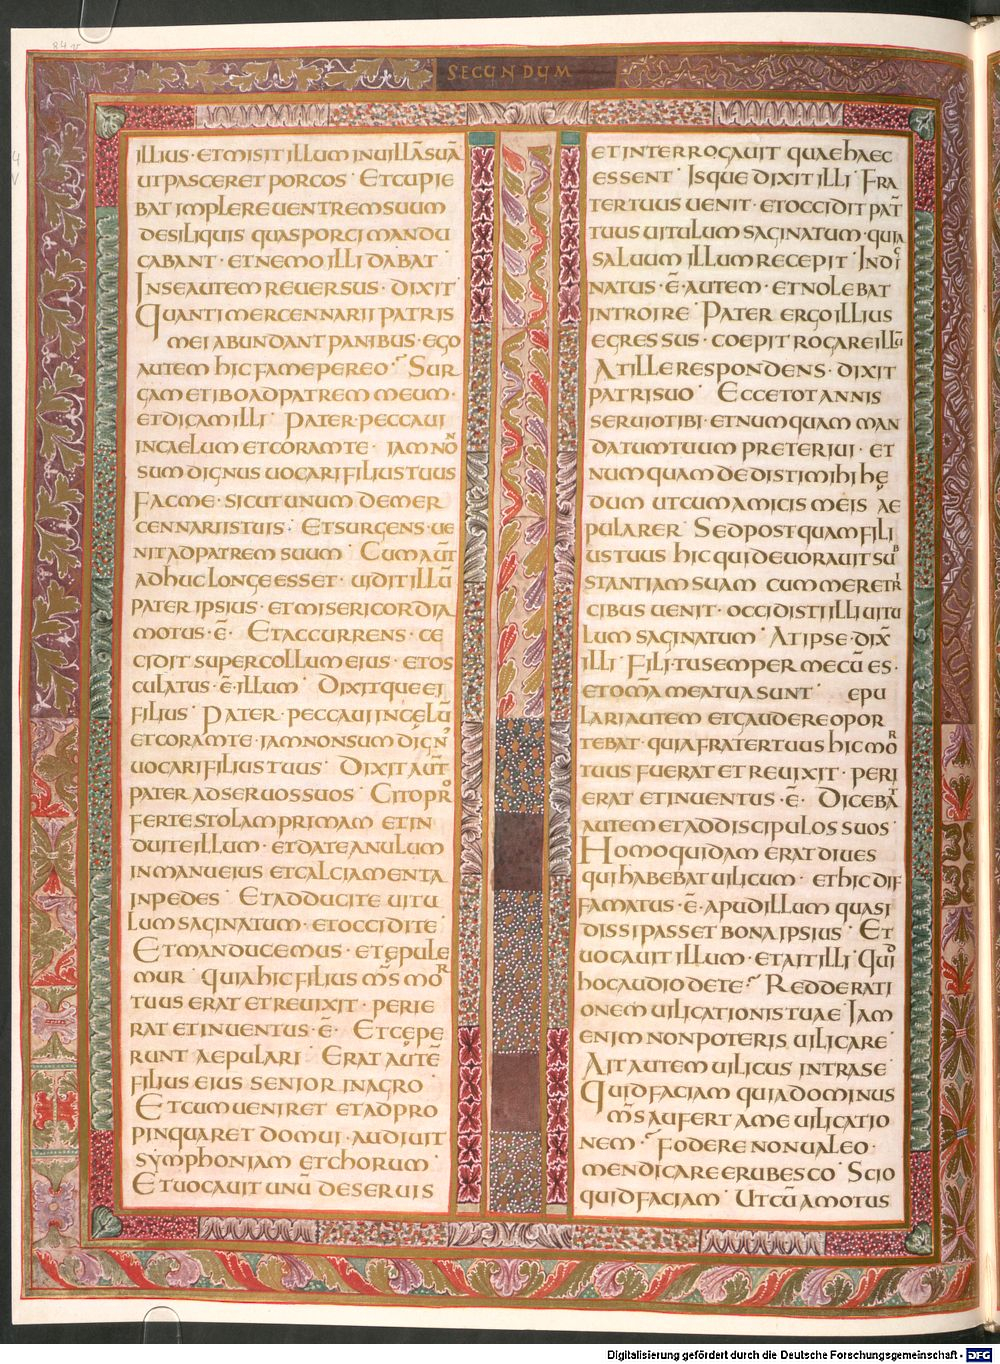 84v
SECUNDUM
illius · et misit illum in uillā suā
ut pasceret porcos · Et cupie
bat implere uentrem suum
de siliquis quas porci mandu
cabant · et nemo illi dabat ·
In se autem reuersus · dixit ·
Quanti mercennarii patris
mei abundant panibus · ego
autem hic fame pereo · Sur
gam et ibo ad patrem meum ·
et dicam illi · Pater · peccaui
in caelum et coram te · iam nōn
sum dignus uocari filius tuus
Fac me · sicut unum de mer
cennariis tuis · Et surgens · ue
nit ad patrem suum · Cum aūt
adhuc longe esset · uidit illū
pater ipsius · et misericordia
motus · ē · Et accurrens · ce
cidit super collum eius · et os
culatus · ē · illum · Dixitque ei
filius · Pater · peccaui in cęlū
et coram te · iam non sum dign⁹
uocari filius tuus · Dixit aūt
pater ad seruos suos · Cito pro
ferte stolam primam et in
duite illum · et date anulum
in manu eius et calciamenta
in pedes · Et adducite uitu
lum saginatum · et occidite ·
Et manducemus · et epule
mur · quia hic filius m̄s mor
tuus erat et reuixit · perie
rat et inuentus · ē · Et cępe
runt aepulari · Erat aūtē
filius eius senior in agro ·
Et cum ueniret et adpro
pinquaret domui · audiuit
symphoniam et chorum ·
Et uocauit unū de seruis
et interrogauit quae haec
essent · Isque dixit illi · Fra
ter tuus uenit · et occidit pat̄
tuus uitulum saginatum · quia
saluum illum recepit · Indi
c
natus · ē · autem · et nolebat
introire · Pater ergo illius
egressus · coepit rogare illū
At ille respondens · dixit
patri suo · Ecce tot annis
seruio tibi · et numquam man
datum tuum preteriui · et
numquam dedisti mihi hę
dum ut cum amicis meis ae
pularer · Sed postquam fili
us tuus hic qui deuorauit sub
stantiam suam cum meretri
cibus uenit · occidisti illi uitu
lum saginatum · At ipse · dix̄
illi · Fili · tu semper mecū es ·
et om̄a mea tua sunt · epu
lari autem et gaudere opor
tebat · quia frater tuus hic mor
tuus fuerat et reuixit · peri
erat et inuentus · ē · Dicebat
autem et ad discipulos suos ·
Homo quidam erat diues
qui habebat uilicum · et hic dif
famatus · ē · apud illum quasi
dissipasset bona ipsius · Et
uocauit illum · et ait illi · Quid
hoc audio de te · Redde rati
onem uilicationis tuae · Iam
enim non poteris uilicare ·
Ait autem uilicus intra se ·
Quid faciam quia dominus
m̄s aufert a me uilicatio
nem · Fodere non ualeo ·
mendicare erubesco · Scio
quid faciam · Ut cū amotus
Digitalisierung gefördert durch die Deutsche Forschungsgemeinschaft - DFG